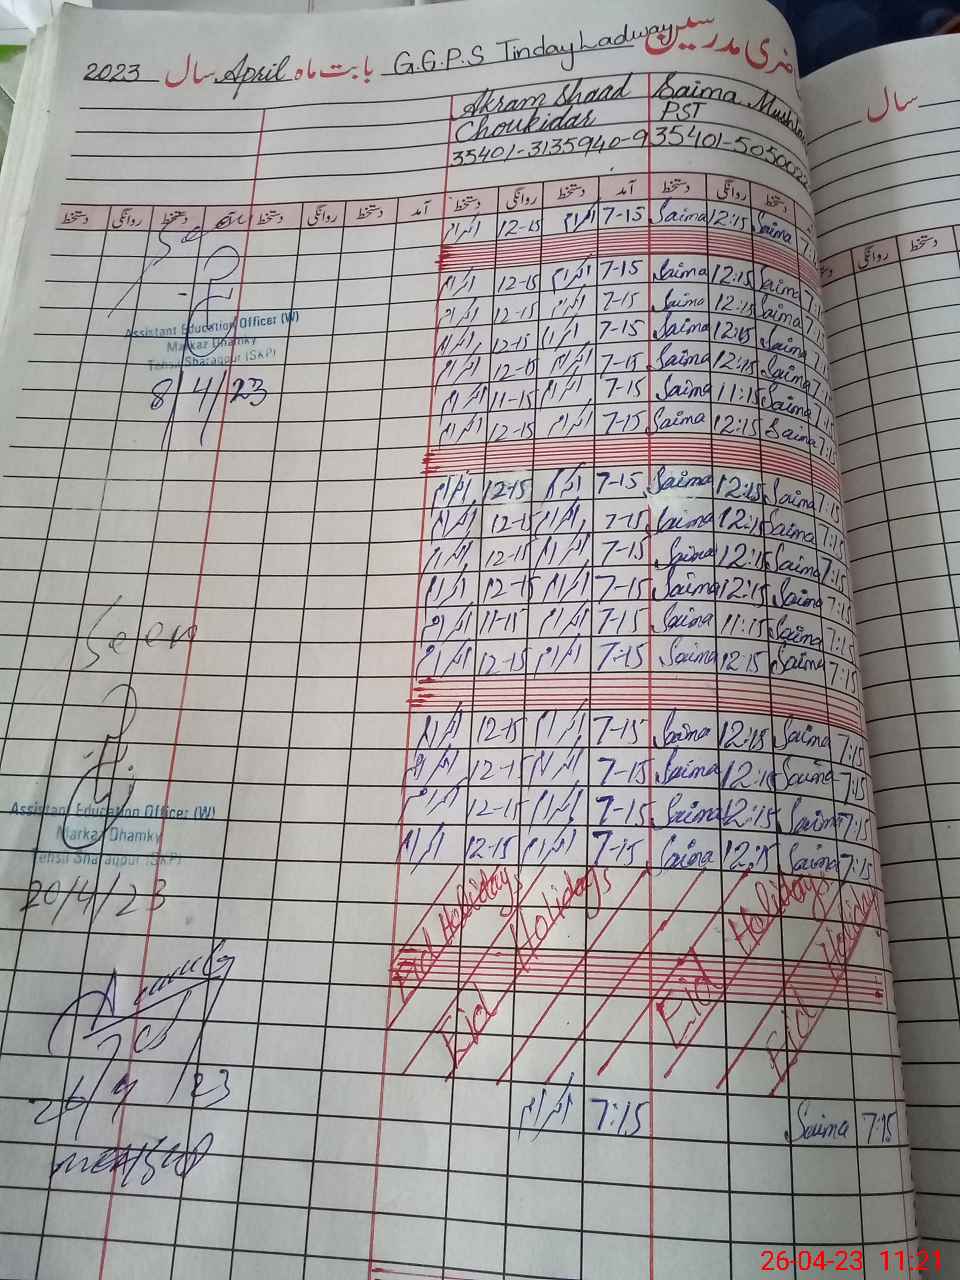 مدرسین
G.G.P.S Tinday Ladway بابت ماہ April سال 2023
Akram Shaad Saima
Choukidar PST
35401-3135940-9 35401-50500
سال
دستخط روانگی دستخط آمد دستخط روانگی دستخط آمد دستخط روانگی دستخط
دستخط روانگی
اکرام 12-15 اکرام 7-15 Saima 12:15 Saima 7:1
اکرام 12-15 اکرام 7-15 Saima 12:15 Saima
اکرام 12-15 اکرام 7-15 Saima 12:15 Saima
اکرام 12-15 اکرام 7-15 Saima 12:15 Saima
اکرام 12-15 اکرام 7-15 Saima 12:15 Saima
اکرام 11-15 اکرام 7-15 Saima 11:15 Saima
اکرام 12-15 اکرام 7-15 Saima 12:15 Saima 7:15
Assistant Education Officer (W)
Markaz Dhamky
Tehsil Sharaqpur (SKP)
8/4/23
اکرام 12-15 اکرام 7-15 Saima 12:15 Saima 7:15
اکرام 12-15 اکرام 7-15 Saima 12:15 Saima 7:15
اکرام 12-15 اکرام 7-15 Saima 12:15 Saima 7:15
اکرام 12-15 اکرام 7-15 Saima 12:15 Saima 7:15
اکرام 11-15 اکرام 7-15 Saima 11:15 Saima 7:15
اکرام 12-15 اکرام 7-15 Saima 12:15 Saima 7:15
Seen
اکرام 12-15 اکرام 7-15 Saima 12:15 Saima 7:15
اکرام 12-15 اکرام 7-15 Saima 12:15 Saima 7:15
اکرام 12-15 اکرام 7-15 Saima 12:15 Saima 7:15
اکرام 12-15 اکرام 7-15 Saima 12:15 Saima 7:15
Assistant Education Officer (W)
Markaz Dhamky
Tehsil Sharaqpur (SKP)
20/4/23
Eid Holidays
Eid Holidays
Eid Holidays
Eid Holiday
26/4/23
اکرام 7:15 Saima 7:15
26-04-23 11:21